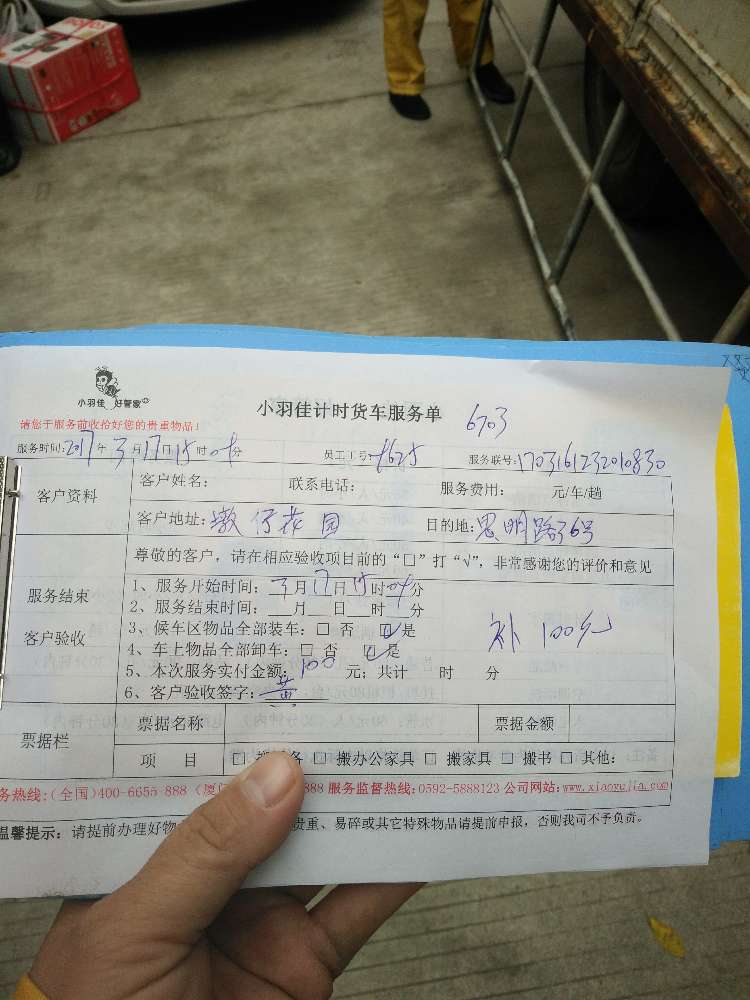 小羽佳 好管家
小羽佳计时货车服务单 6703
请您于服务前收拾好您的贵重物品！
服务时间:2017年3月17日15时04分 员工工号: 服务联号:1703161232010830
客户资料 客户姓名: 联系电话: 服务费用: 元/车/趟
客户地址: 花园 目的地:思明路36号
尊敬的客户，请在相应验收项目前的“□”打“√”，非常感谢您的评价和意见
服务结束
客户验收
1、服务开始时间: 3月17日15时04分
2、服务结束时间: 月 日 时 分
3、候车区物品全部装车: □ 否 ☑是
4、车上物品全部卸车: □ 否 ☑是
补100元
5、本次服务实付金额:100元; 共计 时 分
6、客户验收签字: 黄
票据栏 票据名称 票据金额
项 目 □ □ 搬办公家具 □ 搬家具 □ 搬书 □ 其他:
务热线:(全国)400-6655-888 888 服务监督热线:0592-5888123 公司网站:www.xiaoyujia.com
温馨提示: 请提前办理好物 贵重、易碎或其它特殊物品请提前申报，否则我司不予负责。